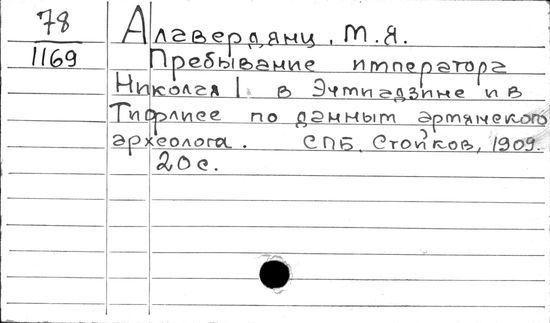 78
1169
Алавердянц, М.Я.
Пребывание императора
Николая I. в Эчмиадзине и в
Тифлисе по данным армянского
археолога. СПБ, Стойков, 1909.
20с.